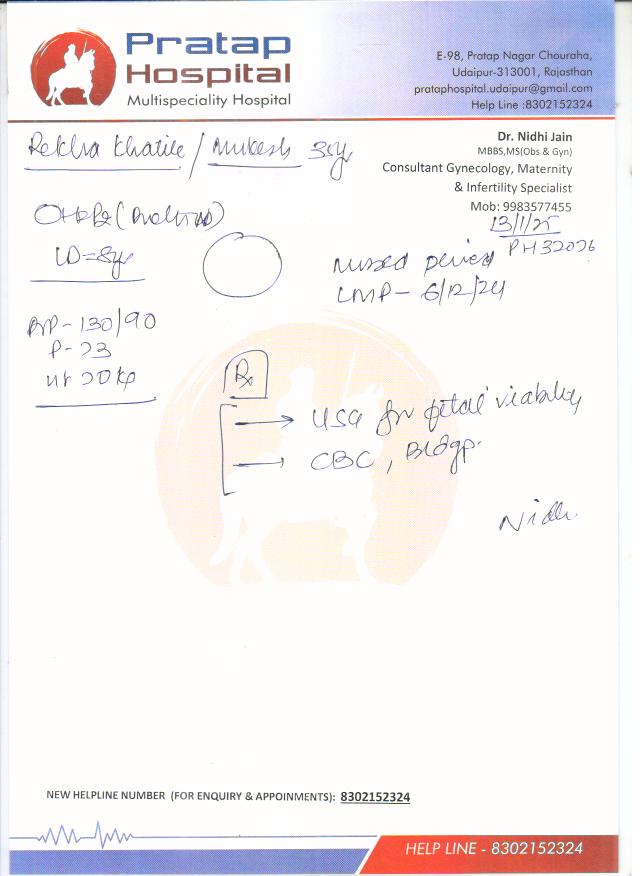 Pratap
Hospital
Multispeciality Hospital
E-98, Pratap Nagar Chouraha,
Udaipur-313001, Rajasthan
prataphospital.udaipur@gmail.com
Help Line :8302152324
Dr. Nidhi Jain
MBBS,MS(Obs & Gyn)
Consultant Gynecology, Maternity
& Infertility Specialist
Mob: 9983577455
Rekha / Mukesh 35y
13/1/25
PH32026
LD=8y
missed period
LMP- 6/12/24
BP-130/90
P-
wt
Rx
→ USG for fetal viability
→ CBC, Bldgp.
Nidhi
NEW HELPLINE NUMBER (FOR ENQUIRY & APPOINMENTS): 8302152324
HELP LINE - 8302152324